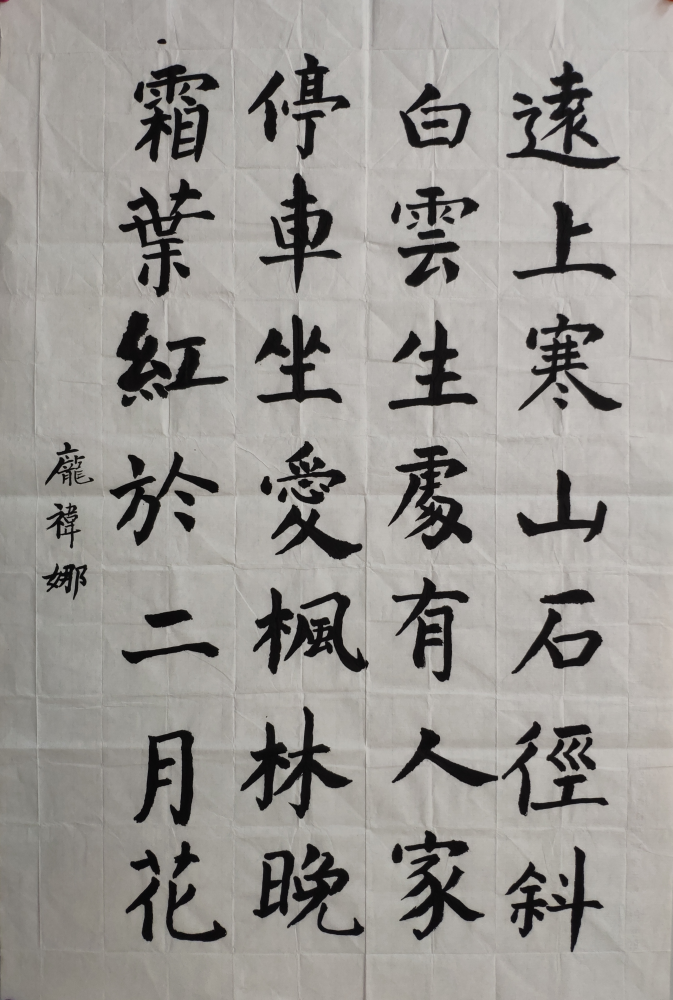 遠上寒山石徑斜
白雲生處有人家
停車坐愛楓林晚
霜葉紅於二月花
龐禕娜